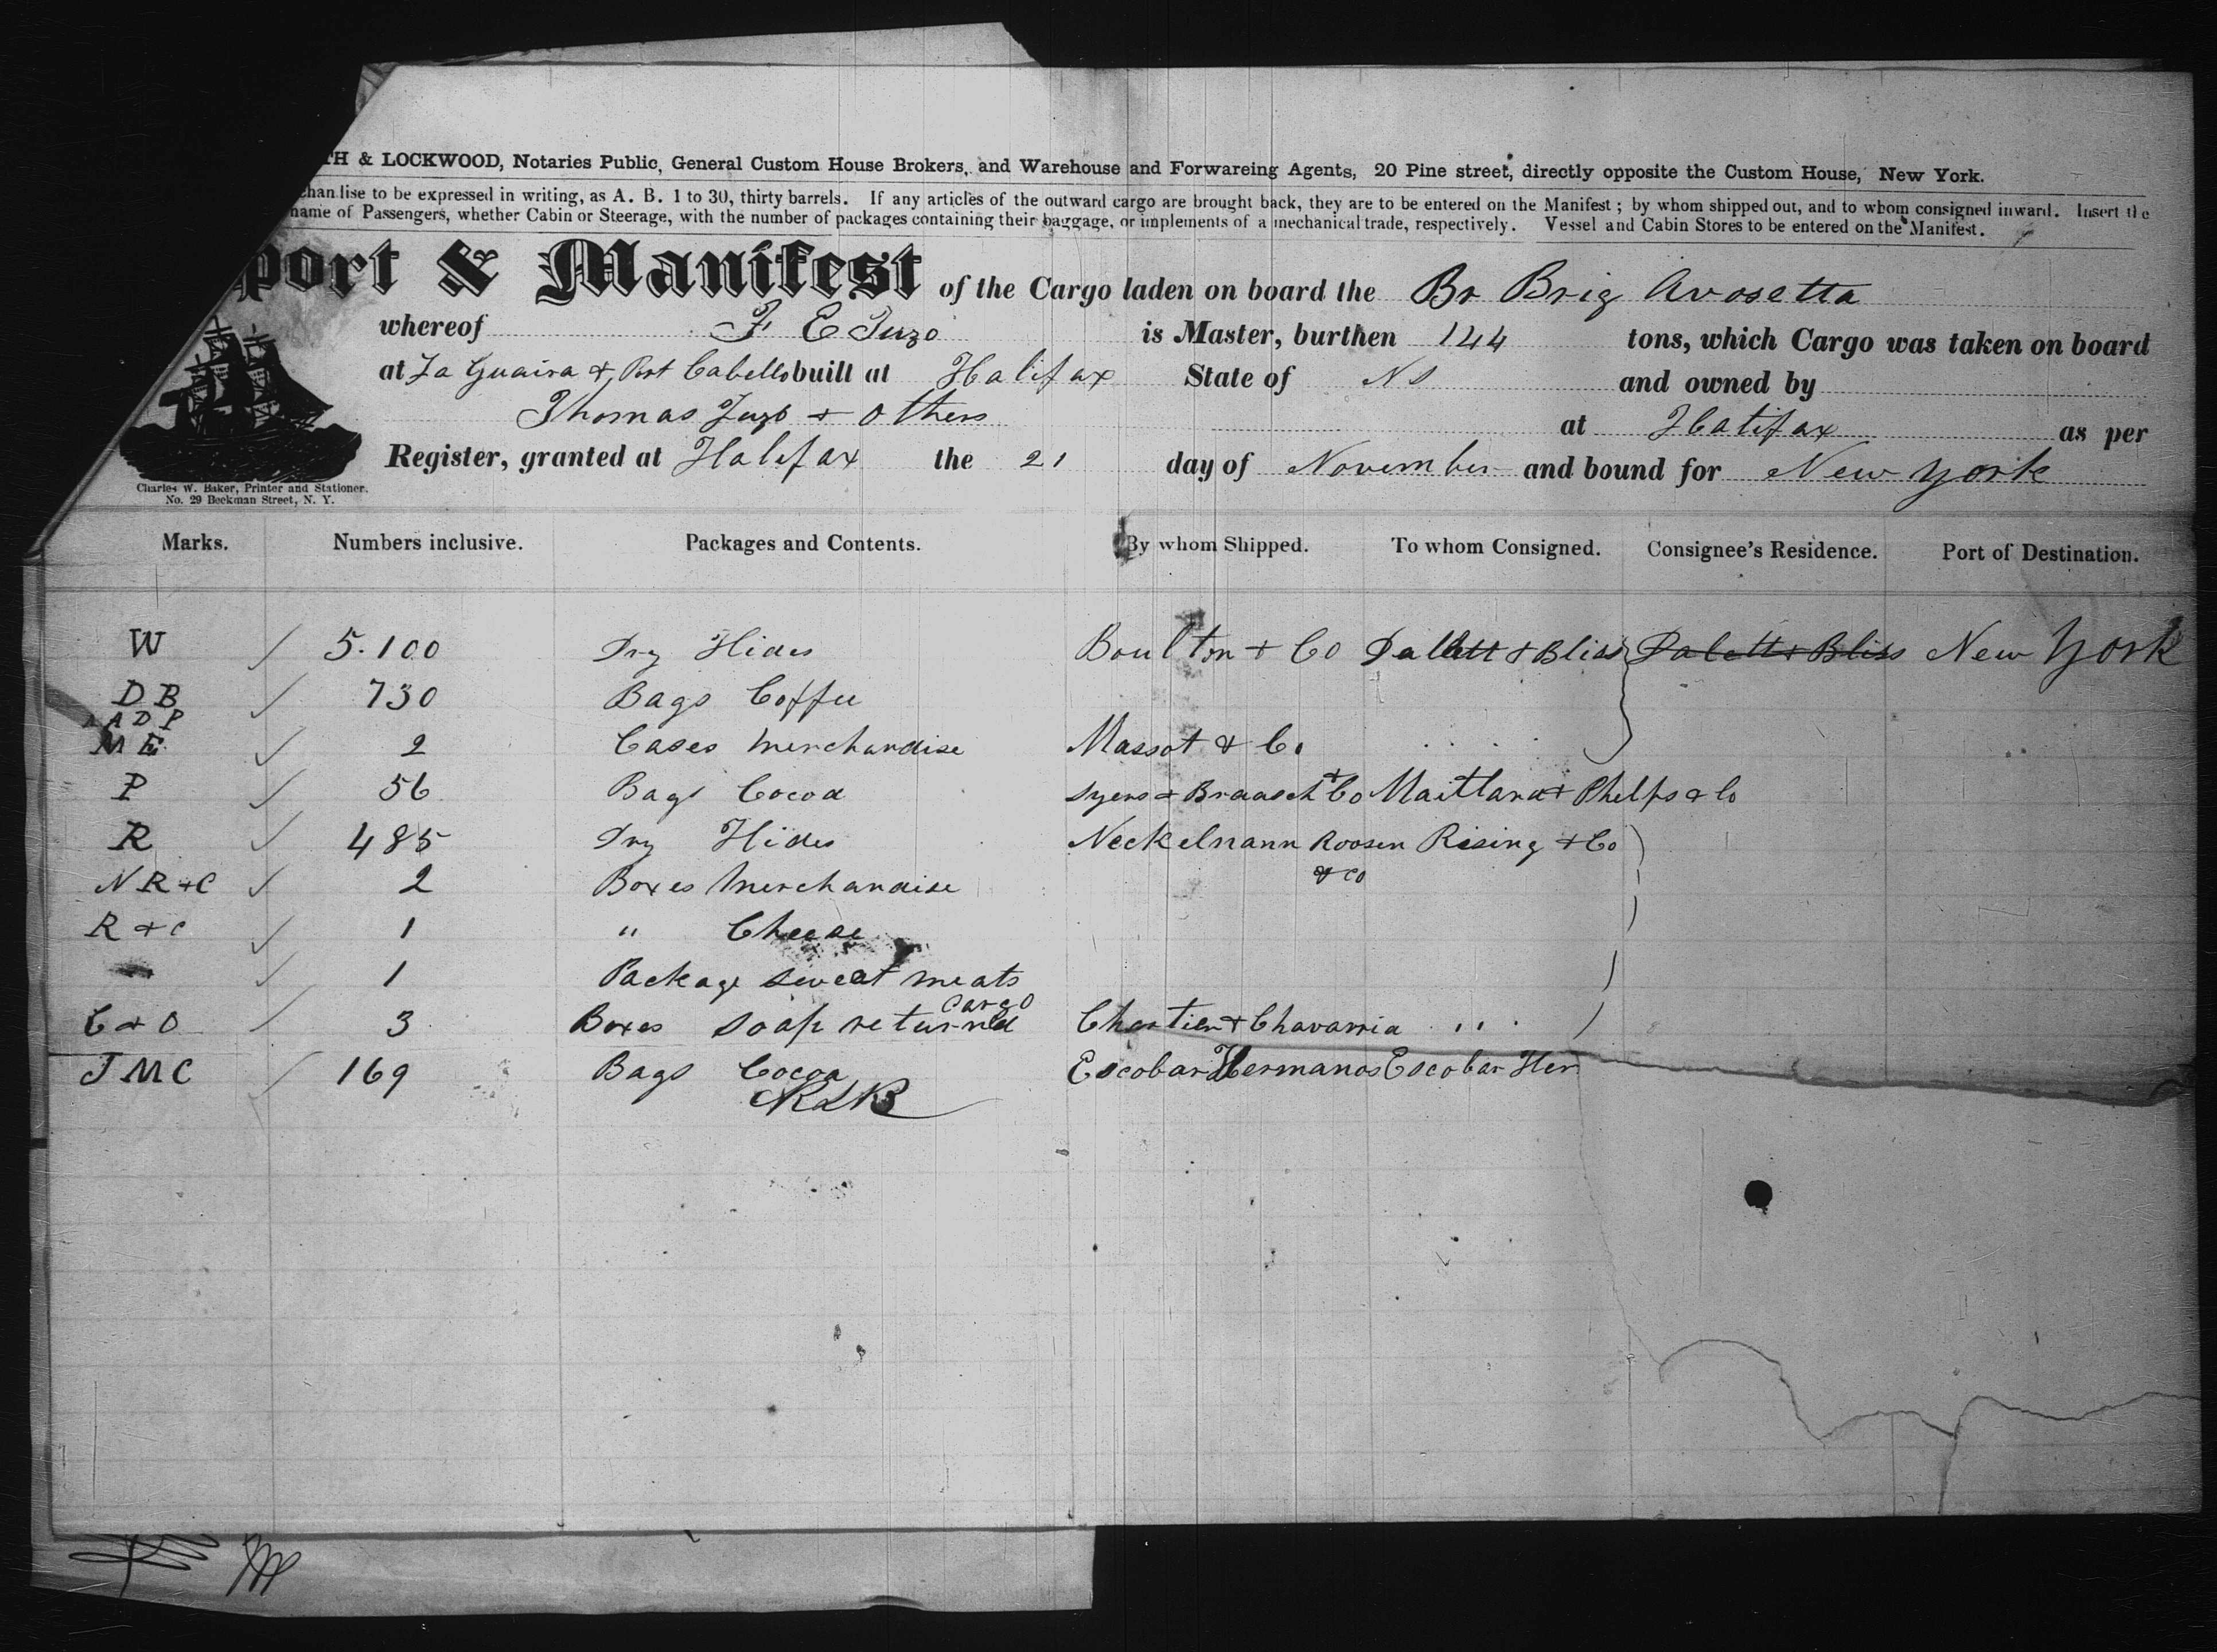 TH & LOCKWOOD, Notaries Public, General Custom House Brokers, and Warehouse and Forwareing Agents, 20 Pine street, directly opposite the Custom House, New York.
chandise to be expressed in writing, as A. B. 1 to 30, thirty barrels. If any articles of the outward cargo are brought back, they are to be entered on the Manifest; by whom shipped out, and to whom consigned inward. Insert the
name of Passengers, whether Cabin or Steerage, with the number of packages containing their baggage, or implements of a mechanical trade, respectively. Vessel and Cabin Stores to be entered on the Manifest.
port & Manifest of the Cargo laden on board the Br Brig Avosetta
whereof F E Tuzo is Master, burthen 144 tons, which Cargo was taken on board
at La Guaira & Port Cabello built at Halifax State of N S and owned by
Thomas Tuzo + Others at Halifax as per
Register, granted at Halifax the 21 day of November and bound for New York
Charles W. Baker, Printer and Stationer.
No. 29 Beekman Street, N. Y.
Marks. Numbers inclusive. Packages and Contents. By whom Shipped. To whom Consigned. Consignee's Residence. Port of Destination.
W 5.100 Dry Hides Boulton + Co Dallett & Bliss Dalett & Bliss New York
D B 730 Bags Coffee
A D P
M E 2 Cases Merchandise Massot & Co.
P 56 Bags Cocoa Syers & Braasch & Co Maitland & Phelps & Co
R 485 Dry Hides Neckelmann Roosen Rising & Co
N R & C 2 Boxes Merchandise & Co
R & C 1 " Cheese
1 Package sweet meats
C & O 3 Boxes soap returned Cargo Chartier & Chavarria " "
J M C 169 Bags Cocoa Escobar Hermanos Escobar Her